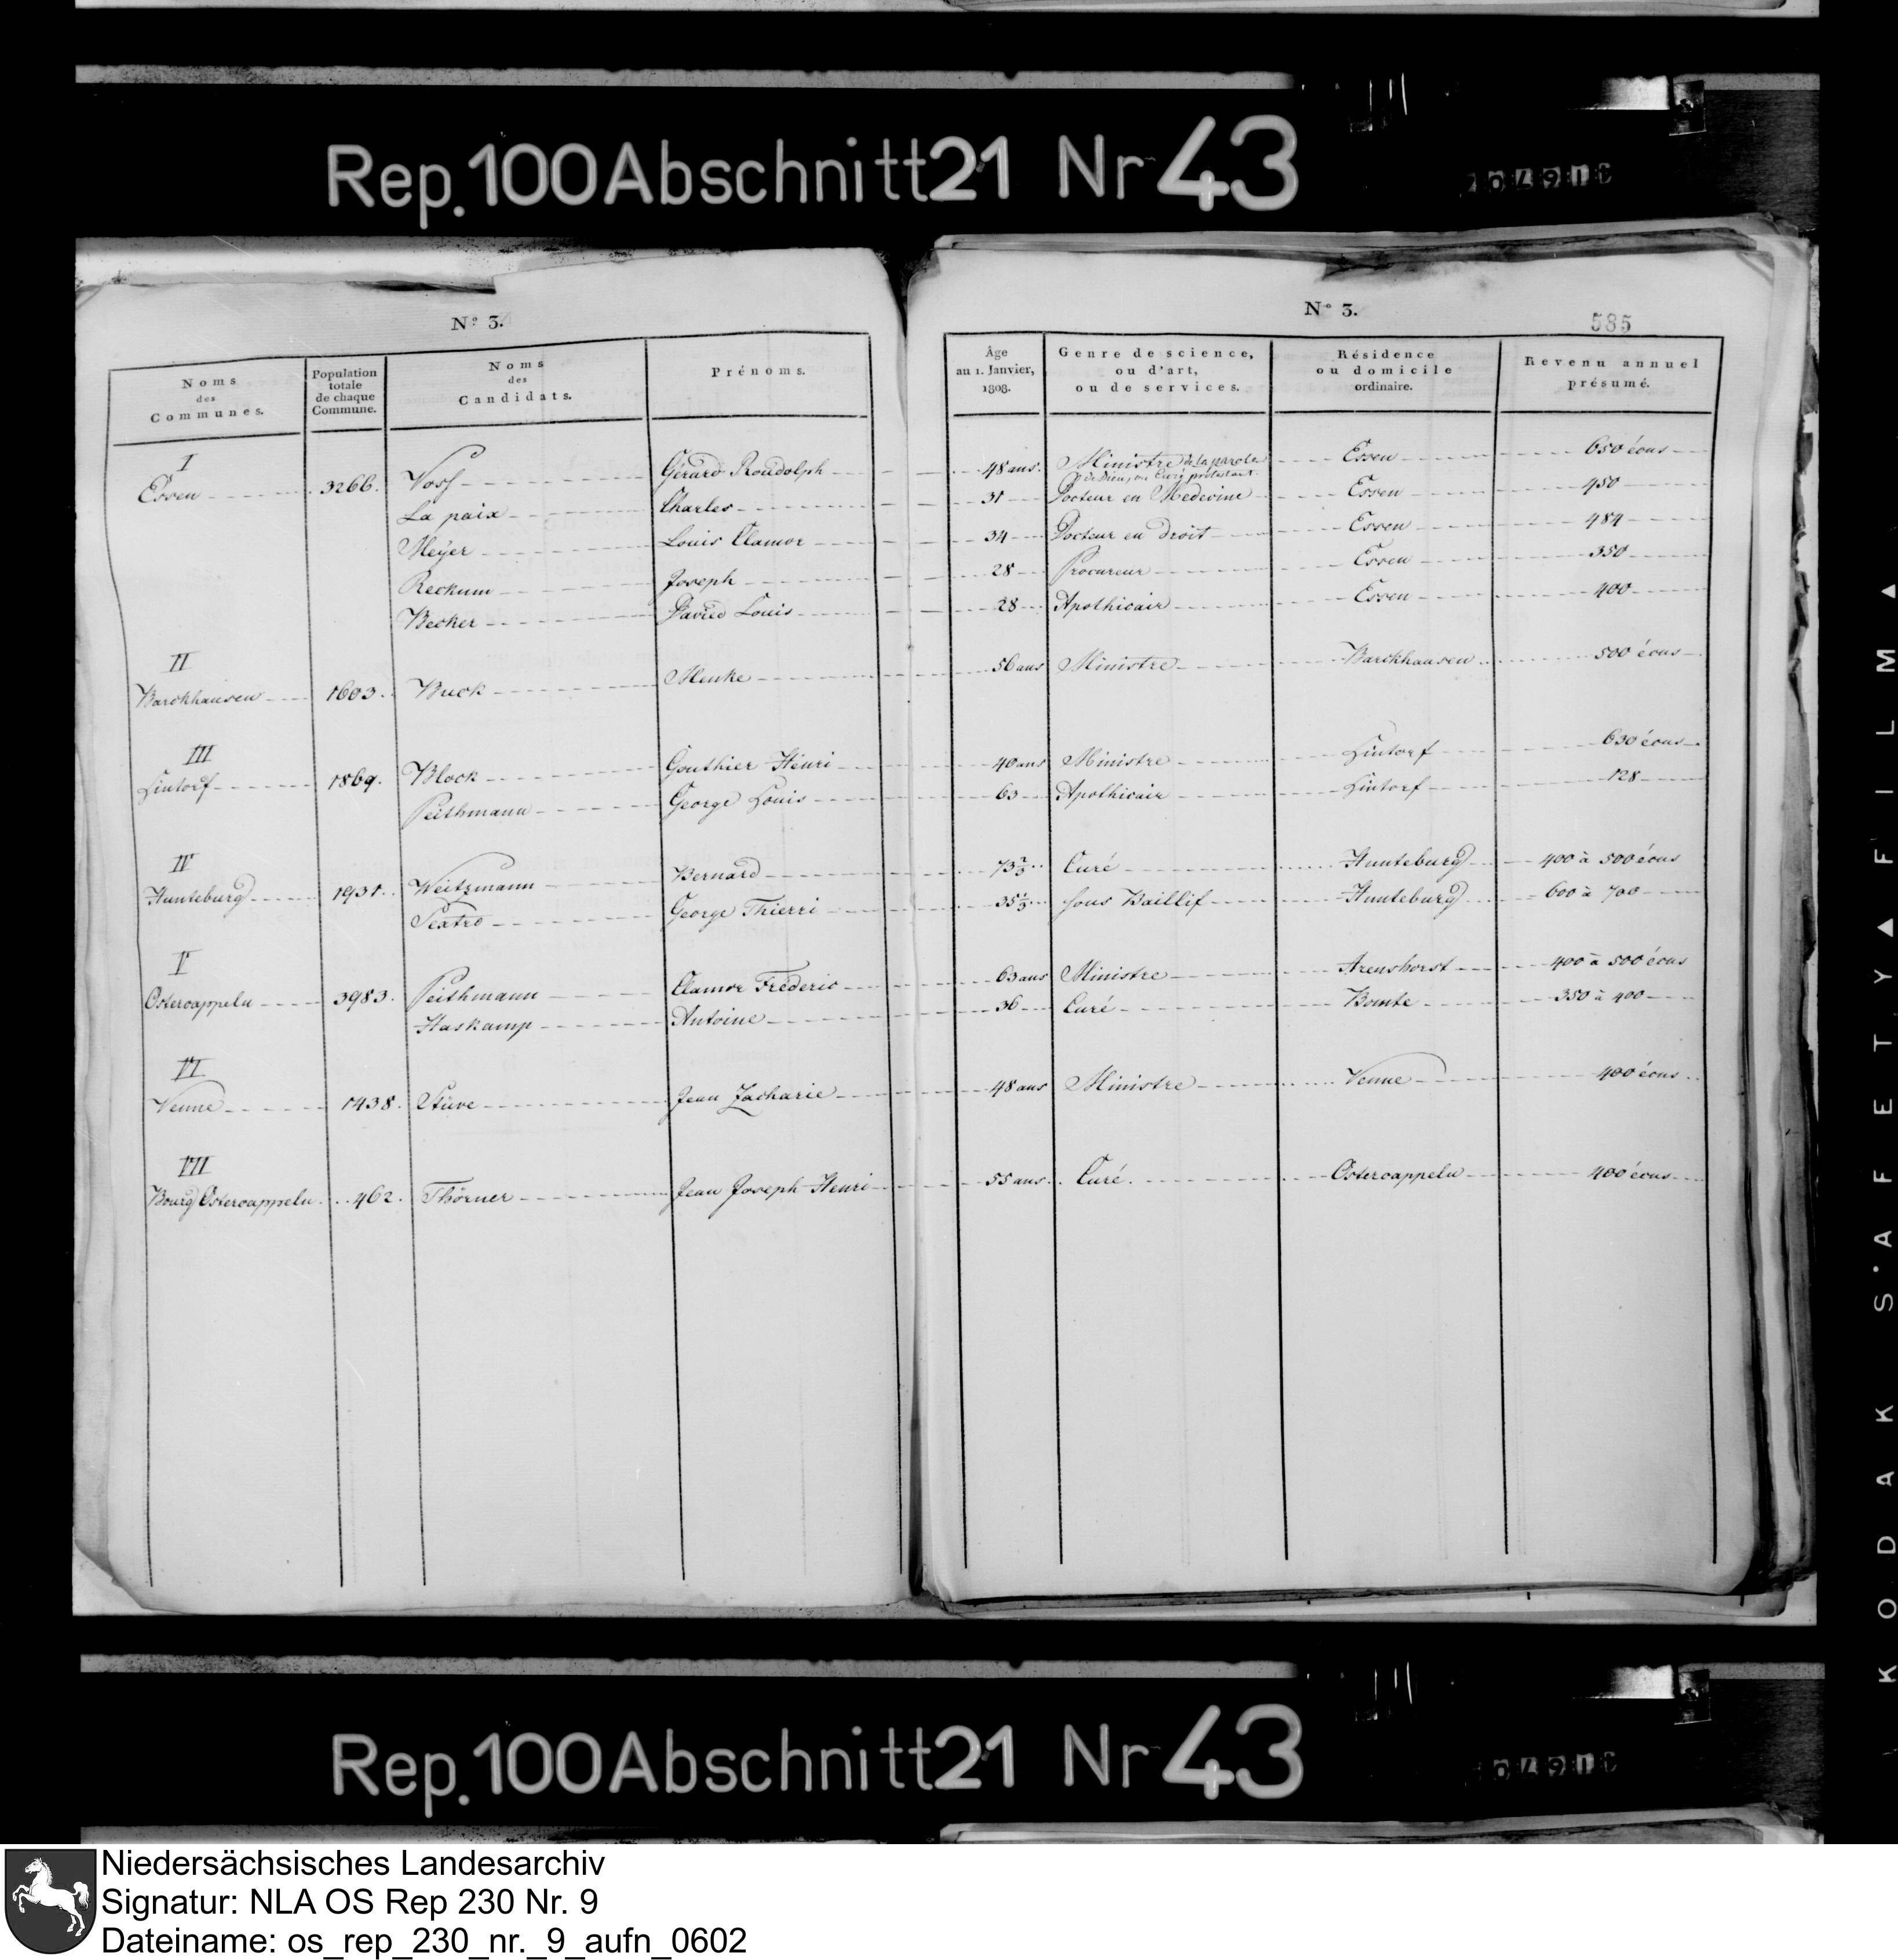 Rep. 100 Abschnitt 21 Nr 43
Nº 3.
Noms des Communes.
Population totale de chaque Commune.
Noms des Candidats.
Prénoms.
Nº 3.
585
Âge au 1. Janvier, 1808.
Genre de science, ou d'art, ou de services.
Résidence ou domicile ordinaire.
Revenu annuel présumé.
I
Essen 3266. Voss Gérard Roudolph 48 ans. Ministre de la parole de Dieu, ou Curé protestant Essen 650 écus
La paix Charles 31 Docteur en Medecine Essen 450
Meyer Louis Clamor 34 Docteur en droit Essen 484
Reckum Joseph 28 Procureur Essen 350
Becker David Louis 28 Apothicair Essen 400
II
Barckhausen 1603. Buck Menke 56 ans Ministre Barckhausen 500 écus
III
Lintorf 1869. Block Gouthier Henri 40 ans Ministre Lintorf 630 écus
Peithmann George Louis 63 Apothicair Lintorf 128
IV
Hunteburg 1931. Weitzmann Bernard 73 Curé Hunteburg 400 à 500 écus
Sextro George Thierri 35 sous Baillif Hunteburg 600 à 700
V
Ostercappeln 3983. Peithmann Clamor Fréderic 63 ans Ministre Arenshorst 400 à 500 écus
Haskamp Antoine 36 Curé Bomte 350 à 400
VI
Venne 1438. Stüve Jean Zacharie 48 ans Ministre Venne 400 écus
VII
Bourg Ostercappeln 462. Thörner Jean Joseph Henri 55 ans. Curé. Ostercappeln 400 écus
KODAK SAFETY FILM
Rep. 100 Abschnitt 21 Nr 43
Niedersächsisches Landesarchiv
Signatur: NLA OS Rep 230 Nr. 9
Dateiname: os_rep_230_nr._9_aufn_0602